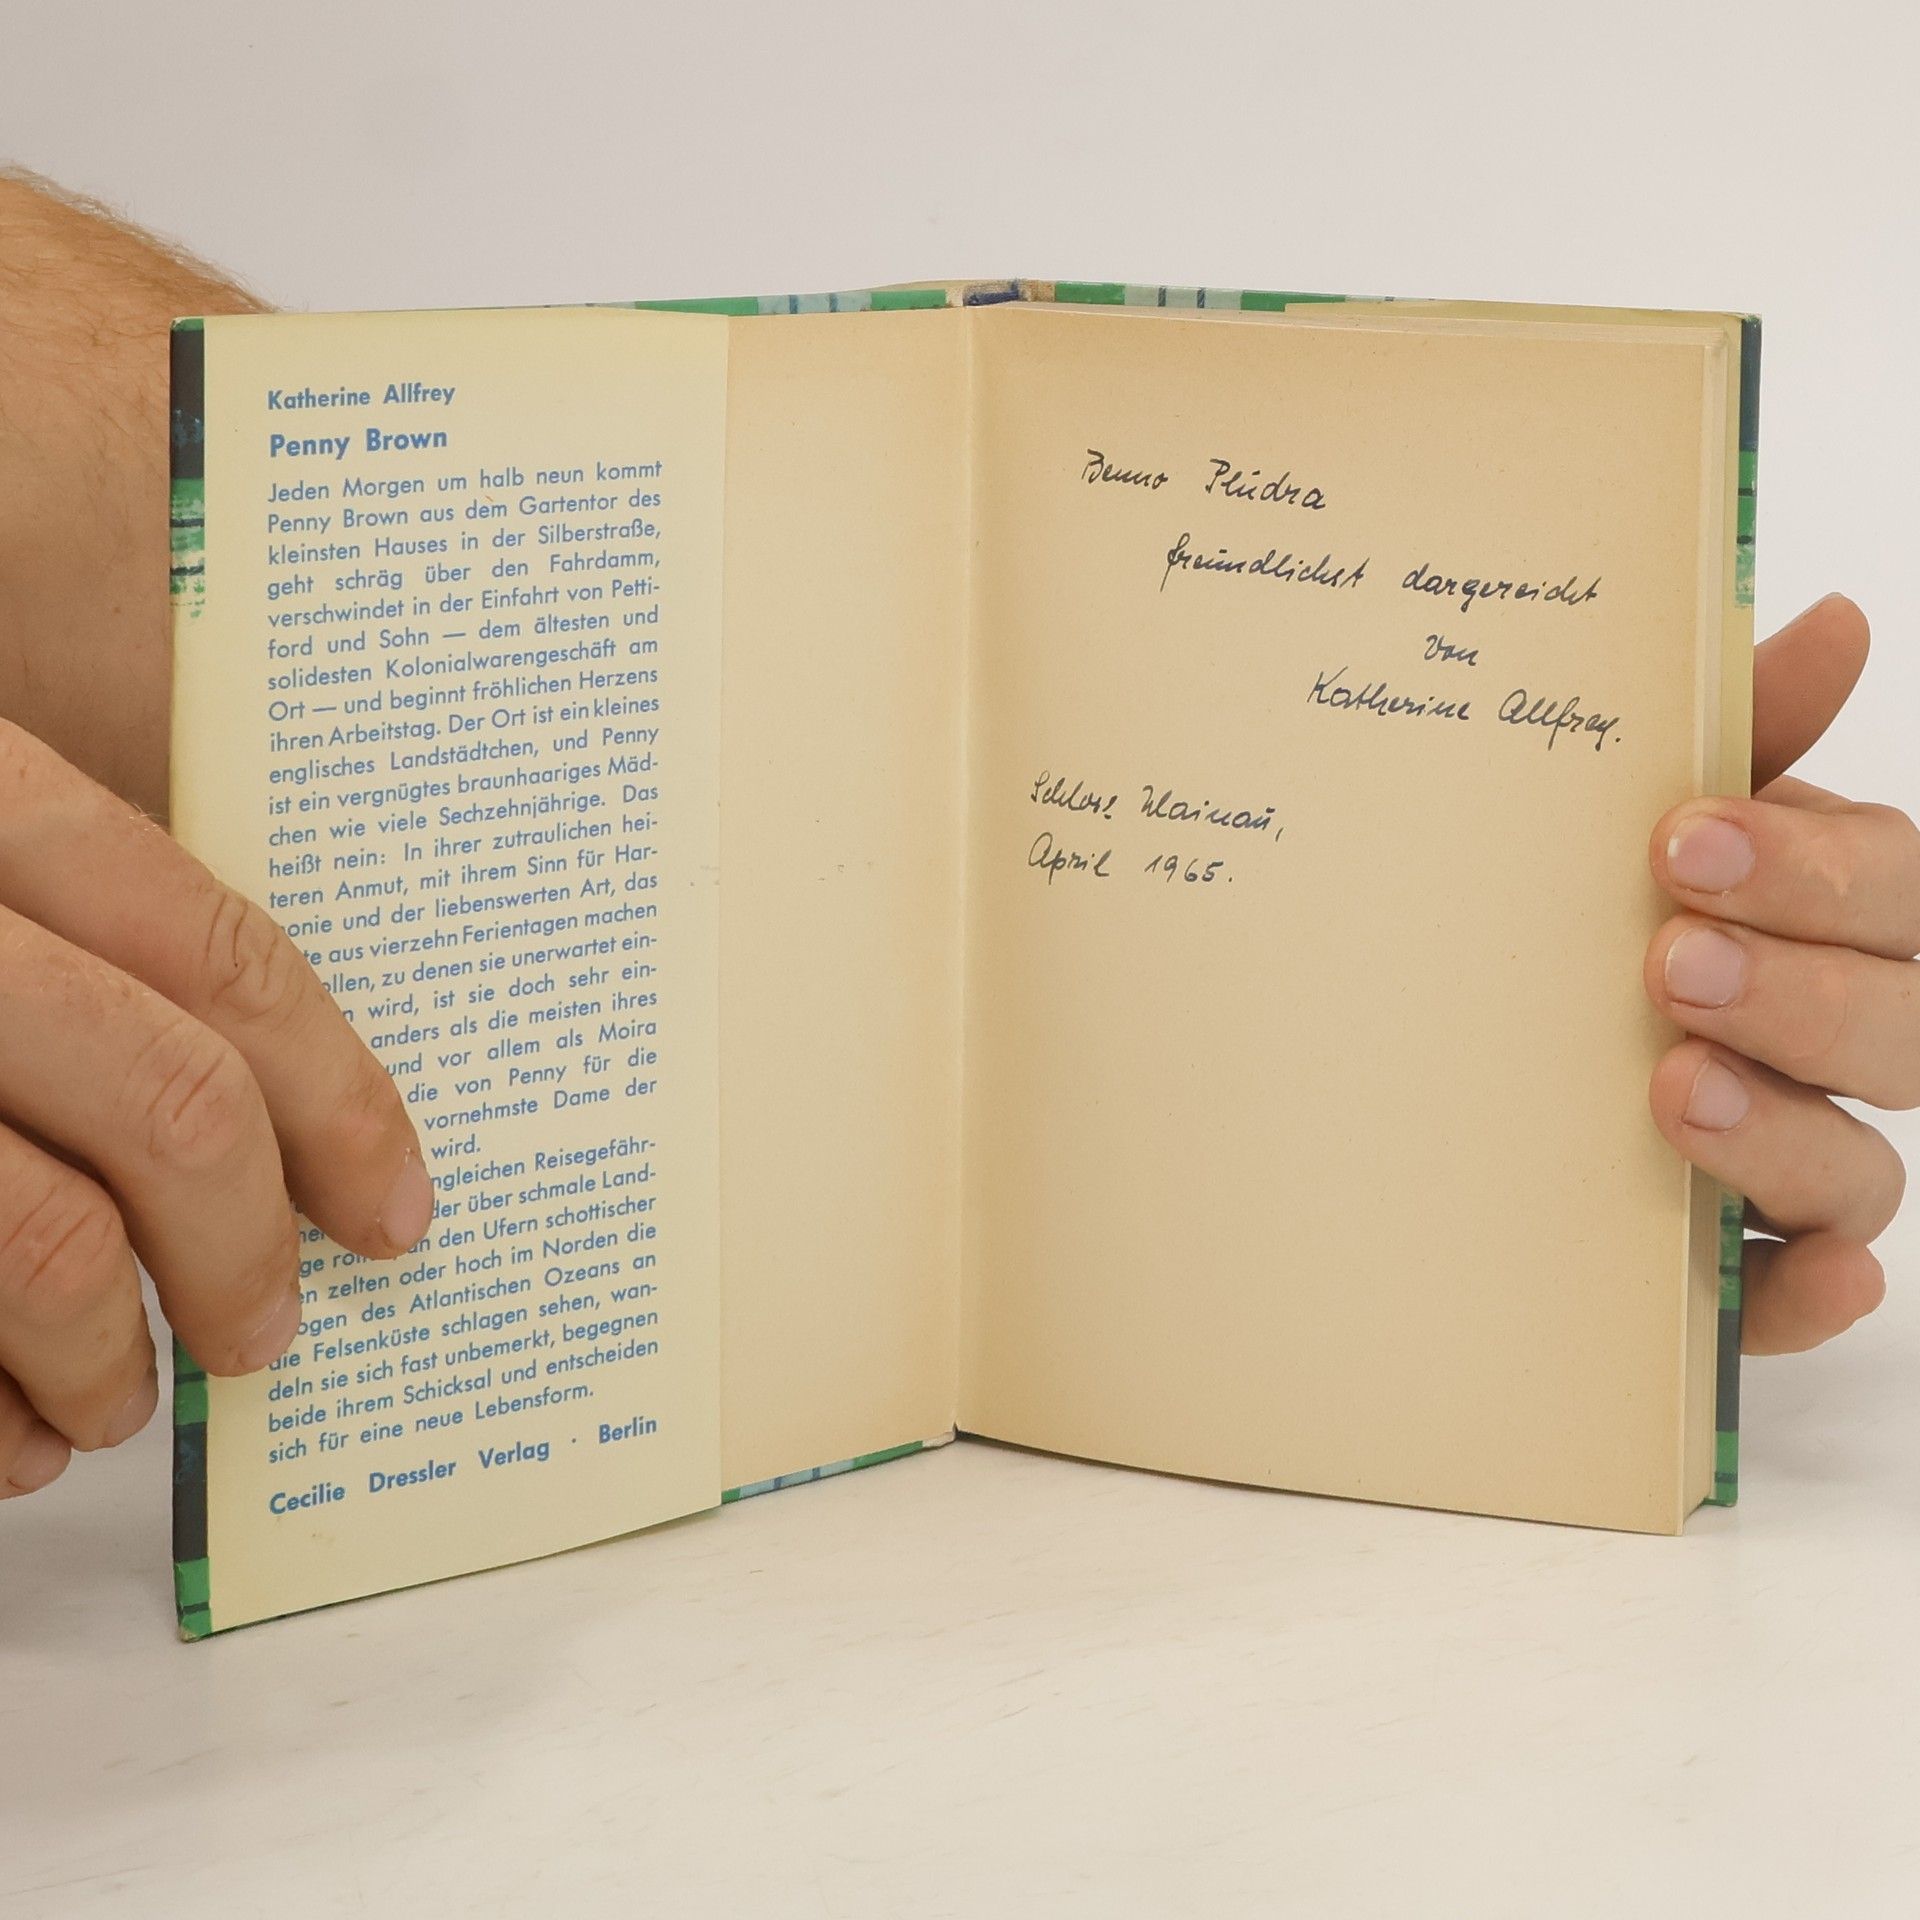 Katherine Allfrey
Penny Brown
Jeden Morgen um halb neun kommt
Penny Brown aus dem Gartentor des
kleinsten Hauses in der Silberstraße,
geht schräg über den Fahrdamm,
verschwindet in der Einfahrt von Petti-
ford und Sohn — dem ältesten und
solidesten Kolonialwarengeschäft am
Ort — und beginnt fröhlichen Herzens
ihren Arbeitstag. Der Ort ist ein kleines
englisches Landstädtchen, und Penny
ist ein vergnügtes braunhaariges Mäd-
chen wie viele Sechzehnjährige. Das
heißt nein: In ihrer zutraulichen hei-
teren Anmut, mit ihrem Sinn für Har-
monie und der liebenswerten Art, das
aus vierzehn Ferientagen machen
zu denen sie unerwartet ein-
wird, ist sie doch sehr ein-
anders als die meisten ihres
und vor allem als Moira
die von Penny für die
vornehmste Dame der
wird.
ngleichen Reisegefähr-
über schmale Land-
an den Ufern schottischer
zelten oder hoch im Norden die
ogen des Atlantischen Ozeans an
die Felsenküste schlagen sehen, wan-
deln sie sich fast unbemerkt, begegnen
beide ihrem Schicksal und entscheiden
sich für eine neue Lebensform.
Cecilie Dressler Verlag · Berlin
Benno Pludra
freundlichst dargereicht
von
Katherine Allfrey.
Schloss Mainau,
April 1965.